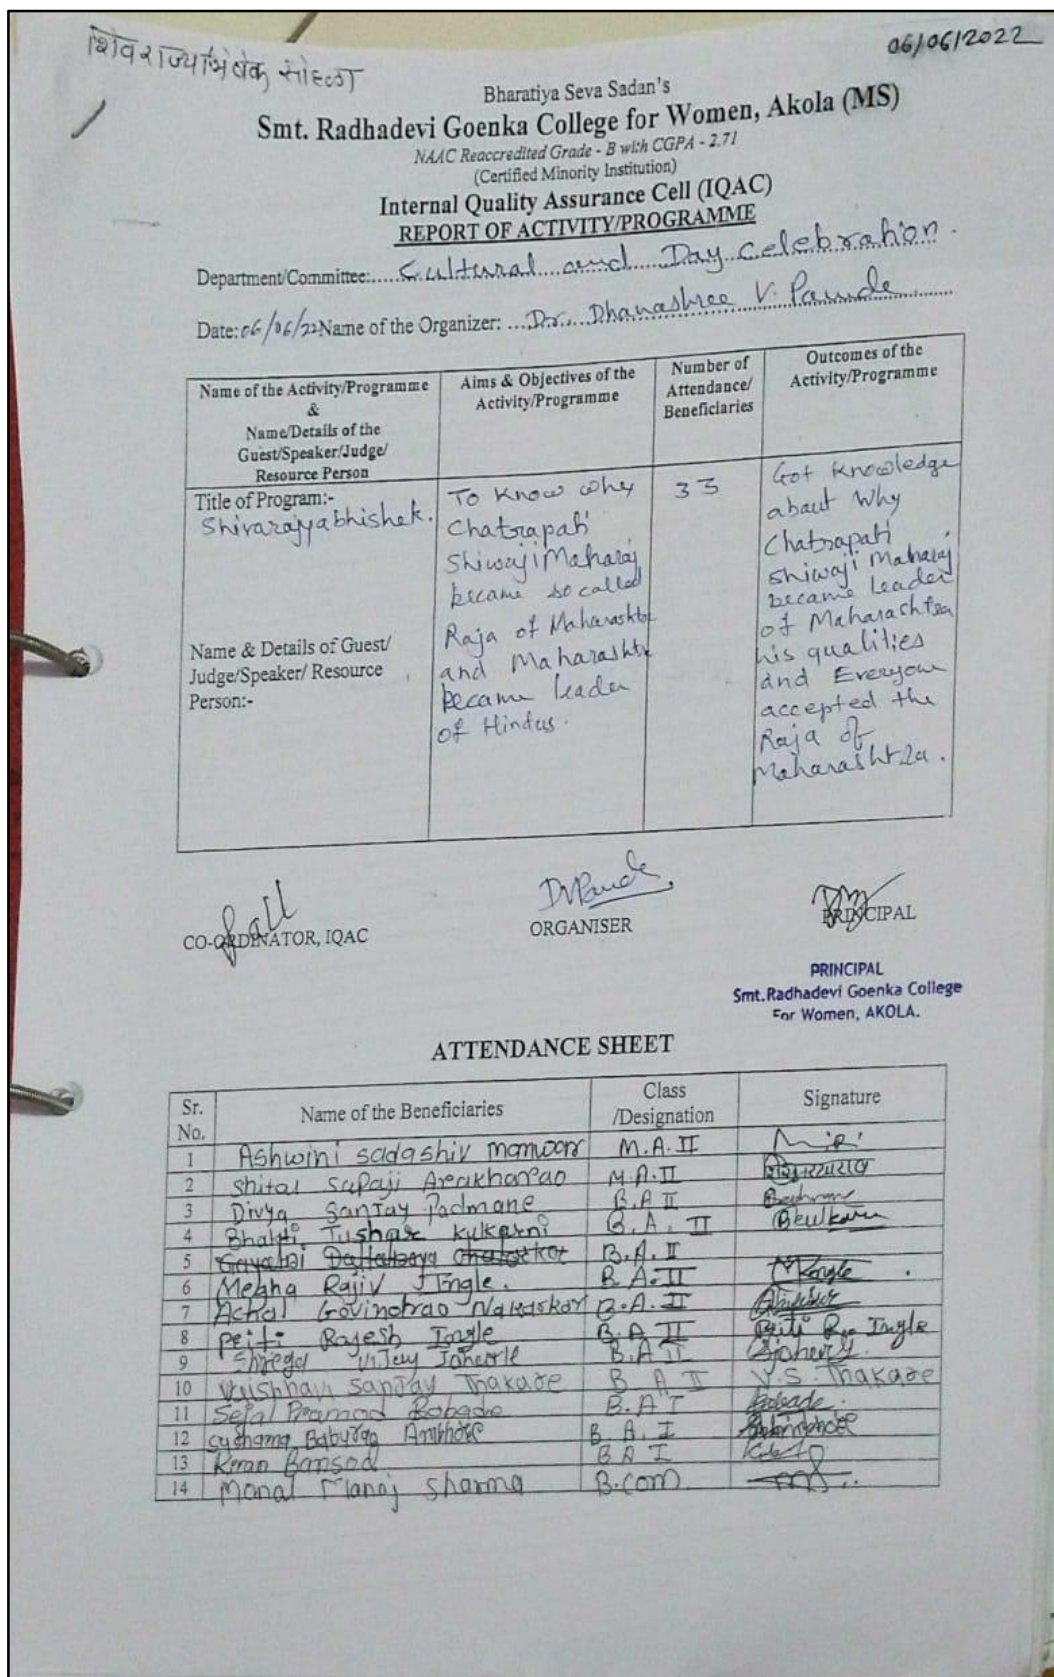 शिवराज्याभिषेक सोहळा
06/06/2022
Bharatiya Seva Sadan's
Smt. Radhadevi Goenka College for Women, Akola (MS)
NAAC Reaccredited Grade - B with CGPA - 2.71
(Certified Minority Institution)
Internal Quality Assurance Cell (IQAC)
REPORT OF ACTIVITY/PROGRAMME
Department/Committee:..... Cultural and Day celebration.
Date: 06/06/22 Name of the Organizer: ... Dr. Dhanashree V. Pande
Name of the Activity/Programme
&
Name/Details of the
Guest/Speaker/Judge/
Resource Person
Aims & Objectives of the
Activity/Programme
Number of
Attendance/
Beneficiaries
Outcomes of the
Activity/Programme
Title of Program:-
Shivarajyabhishek.
Name & Details of Guest/
Judge/Speaker/ Resource
Person:-
To know why
Chatrapati
Shiwaji Maharaj
became so called
Raja of Maharashtra
and Maharashtra
became leader
of Hindus.
33
Got knowledge
about Why
Chatrapati
Shiwaji Maharaj
became leader
of Maharashtra
his qualities
and Everyone
accepted the
Raja of
Maharashtra.
DVPande
CO-ORDINATOR, IQAC
ORGANISER
PRINCIPAL
PRINCIPAL
Smt.Radhadevi Goenka College
For Women, AKOLA.
ATTENDANCE SHEET
Sr.
No.
Name of the Beneficiaries
Class
/Designation
Signature
1 Ashwini Sadashiv M.A.II
2 Shital M.A.II
3 Divya Sanjay Padmane B.A II
4 Bhakti Tushar Kulkarni B.A. II BKulkarni
5 Gayatri Dattatraya B.A. II
6 Megha Rajiv Ingle. B.A.II
7 Achal Govindrao Nakaskar B.A.II
8 Priti Rajesh Ingle B.A II Priti R. Ingle
9 Vijay B.A II
10 Vaishnavi Sanjay Thakare B A II V.S. Thakare
11 Sejal Pramod Bobade B.A I Bobade.
12 Sushama Baburao Ambhore B.A.I
13 Kiran Bansod B A I
14 Manal Manoj Sharma B.com